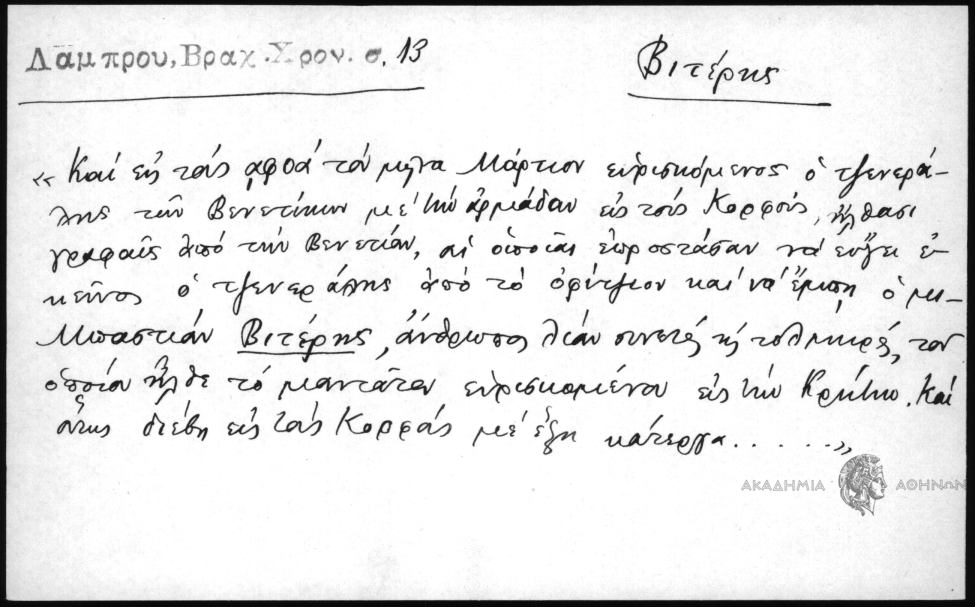 Λαμπρου, Βραχ. Χρον. σ. 13
Βιτέρης
« Καί εἰς τούς ͵αφθά τόν μῆνα Μάρτιον εὑρισκόμενος ὁ τζενερά-
λης τῶν Βενετίκων μέ τήν ἁρμάδαν εἰς τούς Κορφούς, ἤλθασι
γραφαῖς ἀπό τήν Βενετίαν, αἱ ὁποῖαι ἐπροστάσαν νά εὔγει ἐ-
κεῖνος ὁ τζενεράλης ἀπό τό ὀφίτζιον καί νά ἔμπῃ ὁ μι-
Μπαστιάν Βιτέρης, ἄνθρωπος λίαν συνετός κ τολμηρός, τον
ὁποῖον ἦλθε τό μαντᾶτον εὑρισκομένου εἰς τήν Κρήτην. Καί
οὗτος διέβη εἰς τούς Κορφούς μέ ἕξη κάτεργα......»
ΑΚΑΔΗΜΙΑ ΑΘΗΝΩΝ